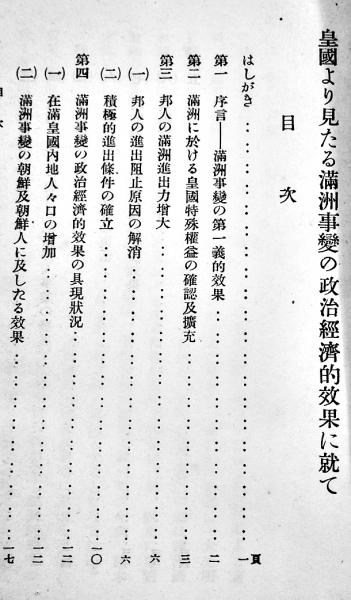 皇國より見たる滿洲事變の政治經濟的效果に就て
目次
はしがき………一頁
第一 序言――滿洲事變の第一義的效果………二
第二 滿洲に於ける皇國特殊權益の確認及擴充………三
第三 邦人の滿洲進出力增大………六
(一) 邦人の進出阻止原因の解消………六
(二) 積極的進出條件の確立………一〇
第四 滿洲事變の政治經濟的效果の具現狀況………一二
(一) 在滿皇國內地人々口の增加………一二
(二) 滿洲事變の朝鮮及朝鮮人に及したる效果………一七